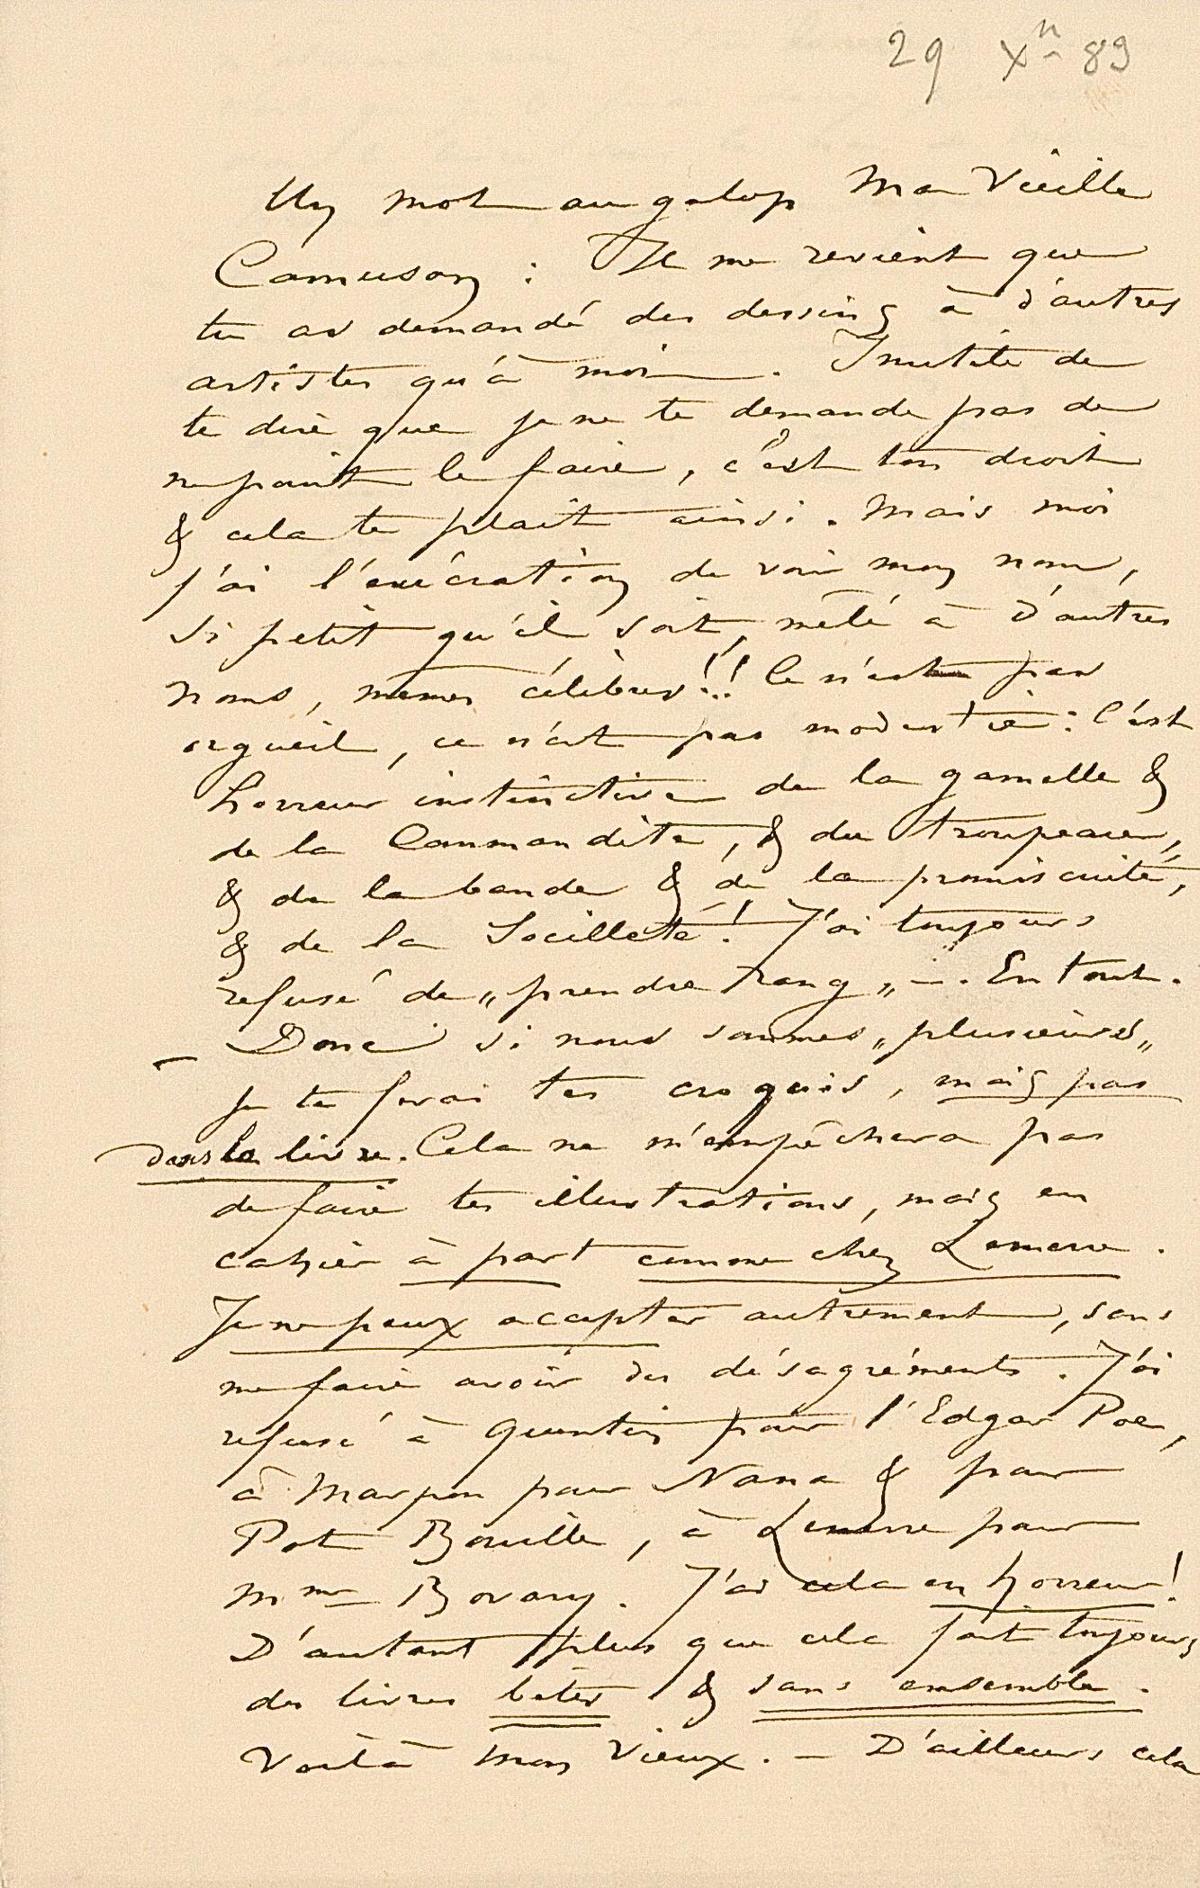 29 Xbre 89
Un mot au galop Ma Vieille
Camuson : Il me revient que
tu as demandé des dessins à d'autres
artistes qu'à moi. Inutile de
te dire que je ne te demande pas de
ne point le faire, c'est ton droit
& cela te plait ainsi. Mais moi
j'ai l'exécration de voir mon nom,
si petit qu'il soit, mêlé à d'autres
noms, mêmes célèbres!! Ce n'est pas
orgueil, ce n'est pas modestie : C'est
horreur instinctive de la gamelle &
de la Commandite, & du troupeau,
& de la bande & de la promiscuité,
& de la Socilleté! J'ai toujours
refusé de „prendre rang„ —. En tout.
Donc si nous sommes „plusieurs„
— je te ferai tes croquis, mais pas
dans le livre. Cela ne m'empêchera pas
de faire tes illustrations, mais en
cahier à part comme chez Lemerre.
Je ne peux accepter autrement, sans
me faire avoir des désagréments. J'ai
refusé à Quantin pour l'Edgar Poe,
à Marpon pour Nana & pour
Pot Bouille, à Lemerre pour
Mme Bovary. J'ai cela en horreur!
D'autant plus que cela fait toujours
des livres bêtes & sans ensemble.
Voilà mon Vieux. — D'ailleurs cela